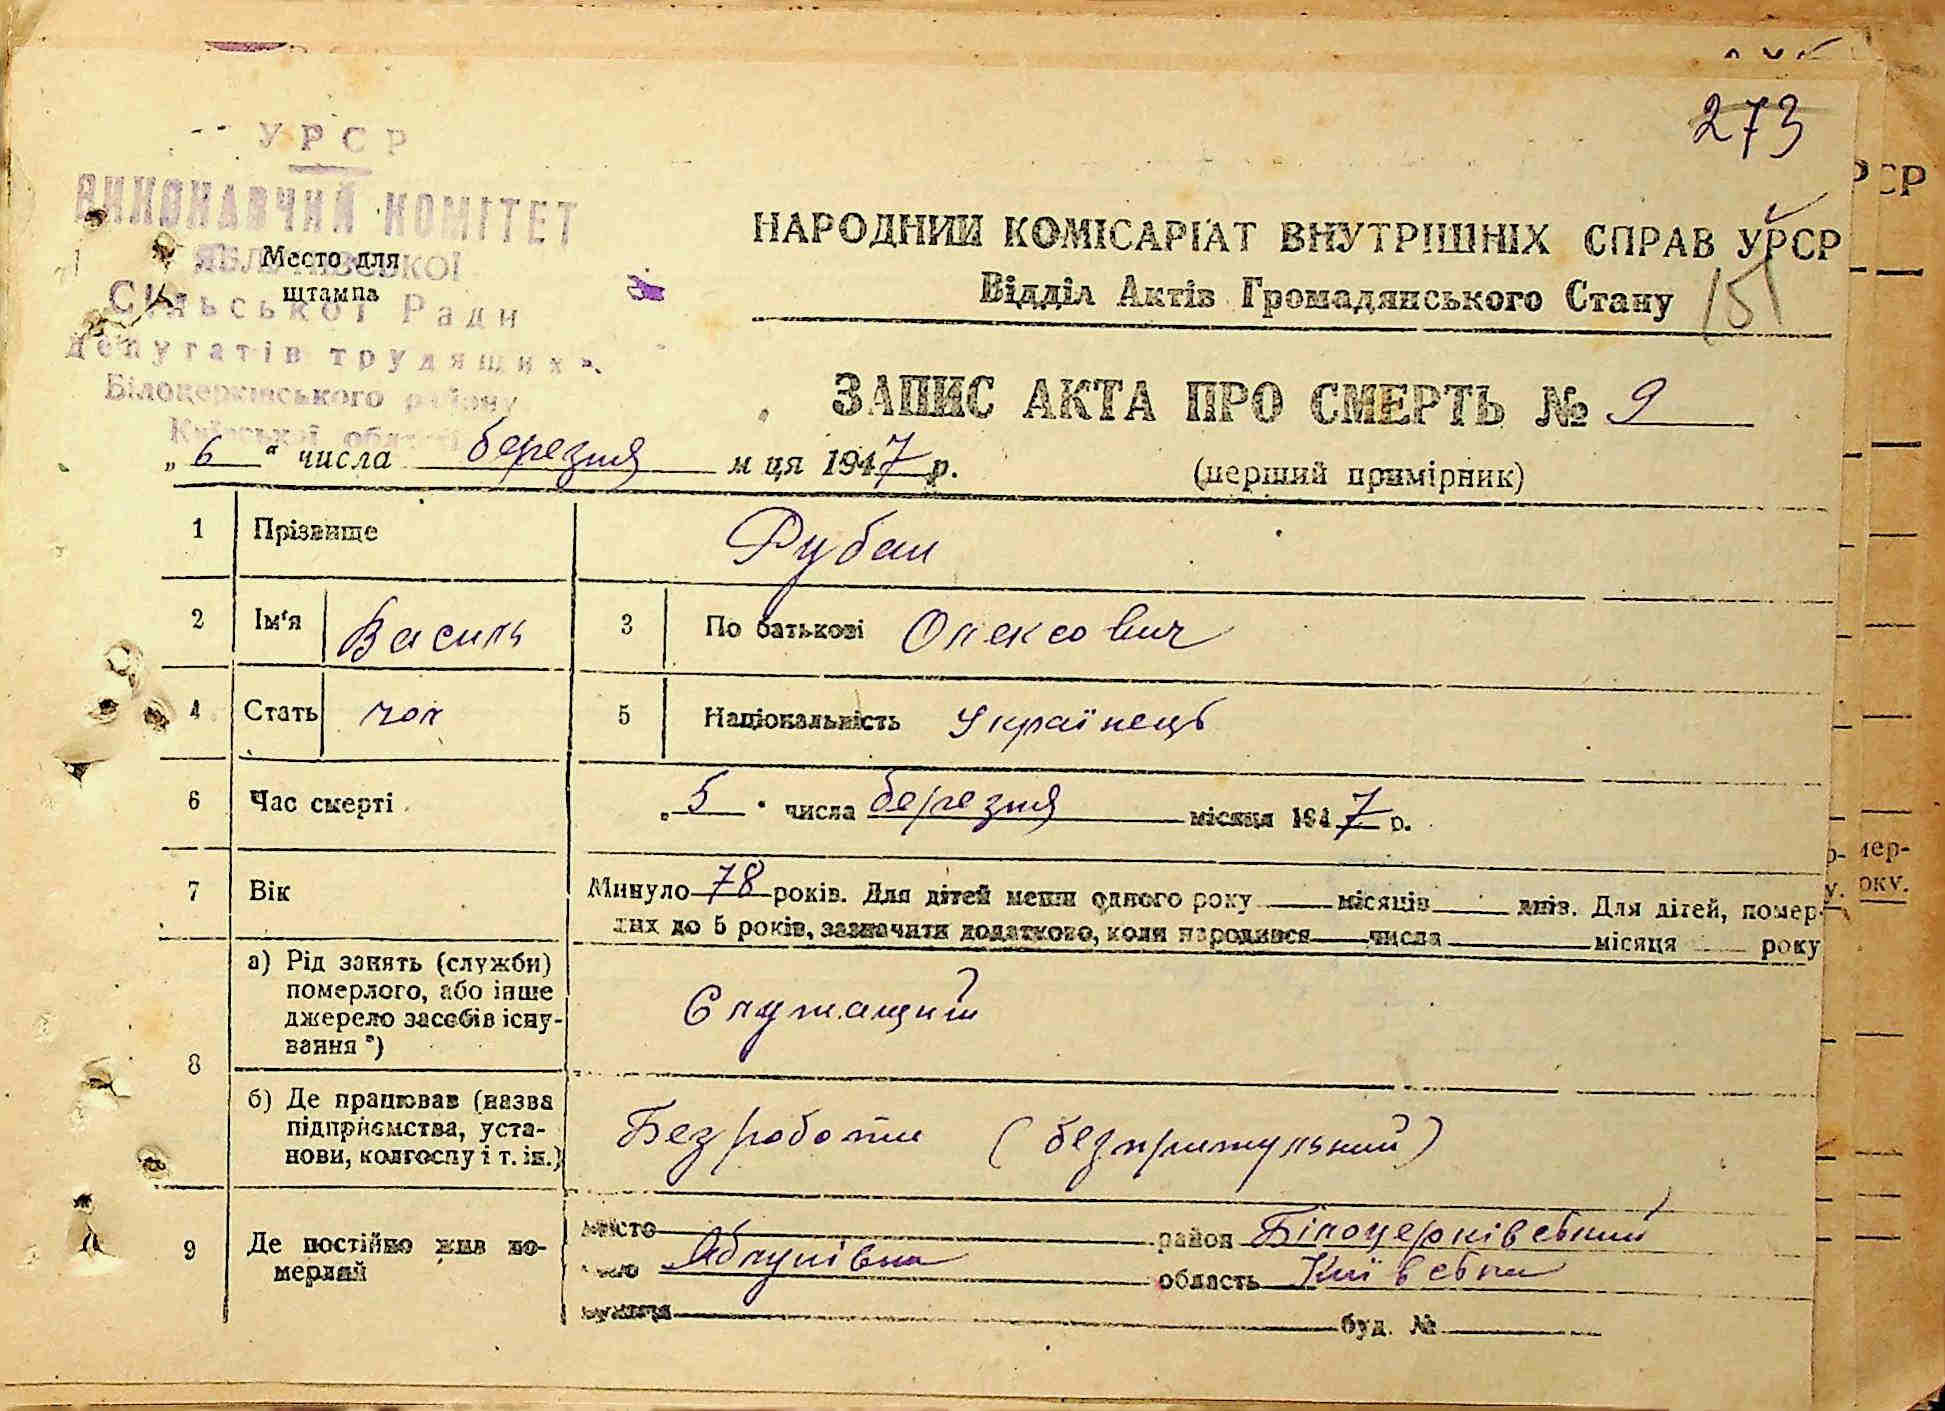 273
УРСР
ВИКОНАВЧИЙ КОМІТЕТ
ЯБЛУНІВСЬКОЇ
Сільської Ради
депутатів трудящих
Білоцерківського району
Київської області
Место для
штампа
НАРОДНИЙ КОМІСАРІАТ ВНУТРІШНІХ СПРАВ УРСР
Відділ Актів Громадянського Стану
151
ЗАПИС АКТА ПРО СМЕРТЬ № 9
„6“ числа березня м ця 1947 р.
(перший примірник)
1 Прізвище Рубан
2 Ім'я Василь 3 По батькові Олексович
4 Стать чол 5 Національність Українець
6 Час смерті „5“ числа березня місяця 1947 р.
7 Вік Минуло 78 років. Для дітей менш одного року місяців днів. Для дітей, помер-
лих до 5 років, зазначити додатково, коли народився числа місяця року
8 а) Рід занять (служби)
померлого, або інше
джерело засобів існу-
вання *)
Служащий
б) Де працював (назва
підприємства, уста-
нови, колгоспу і т. ін.)
Без роботи (безпритульний)
9 Де постійно жив по-
мерлий
місто район Білоцерківський
село Яблунівка область Київська
вулиця буд. №